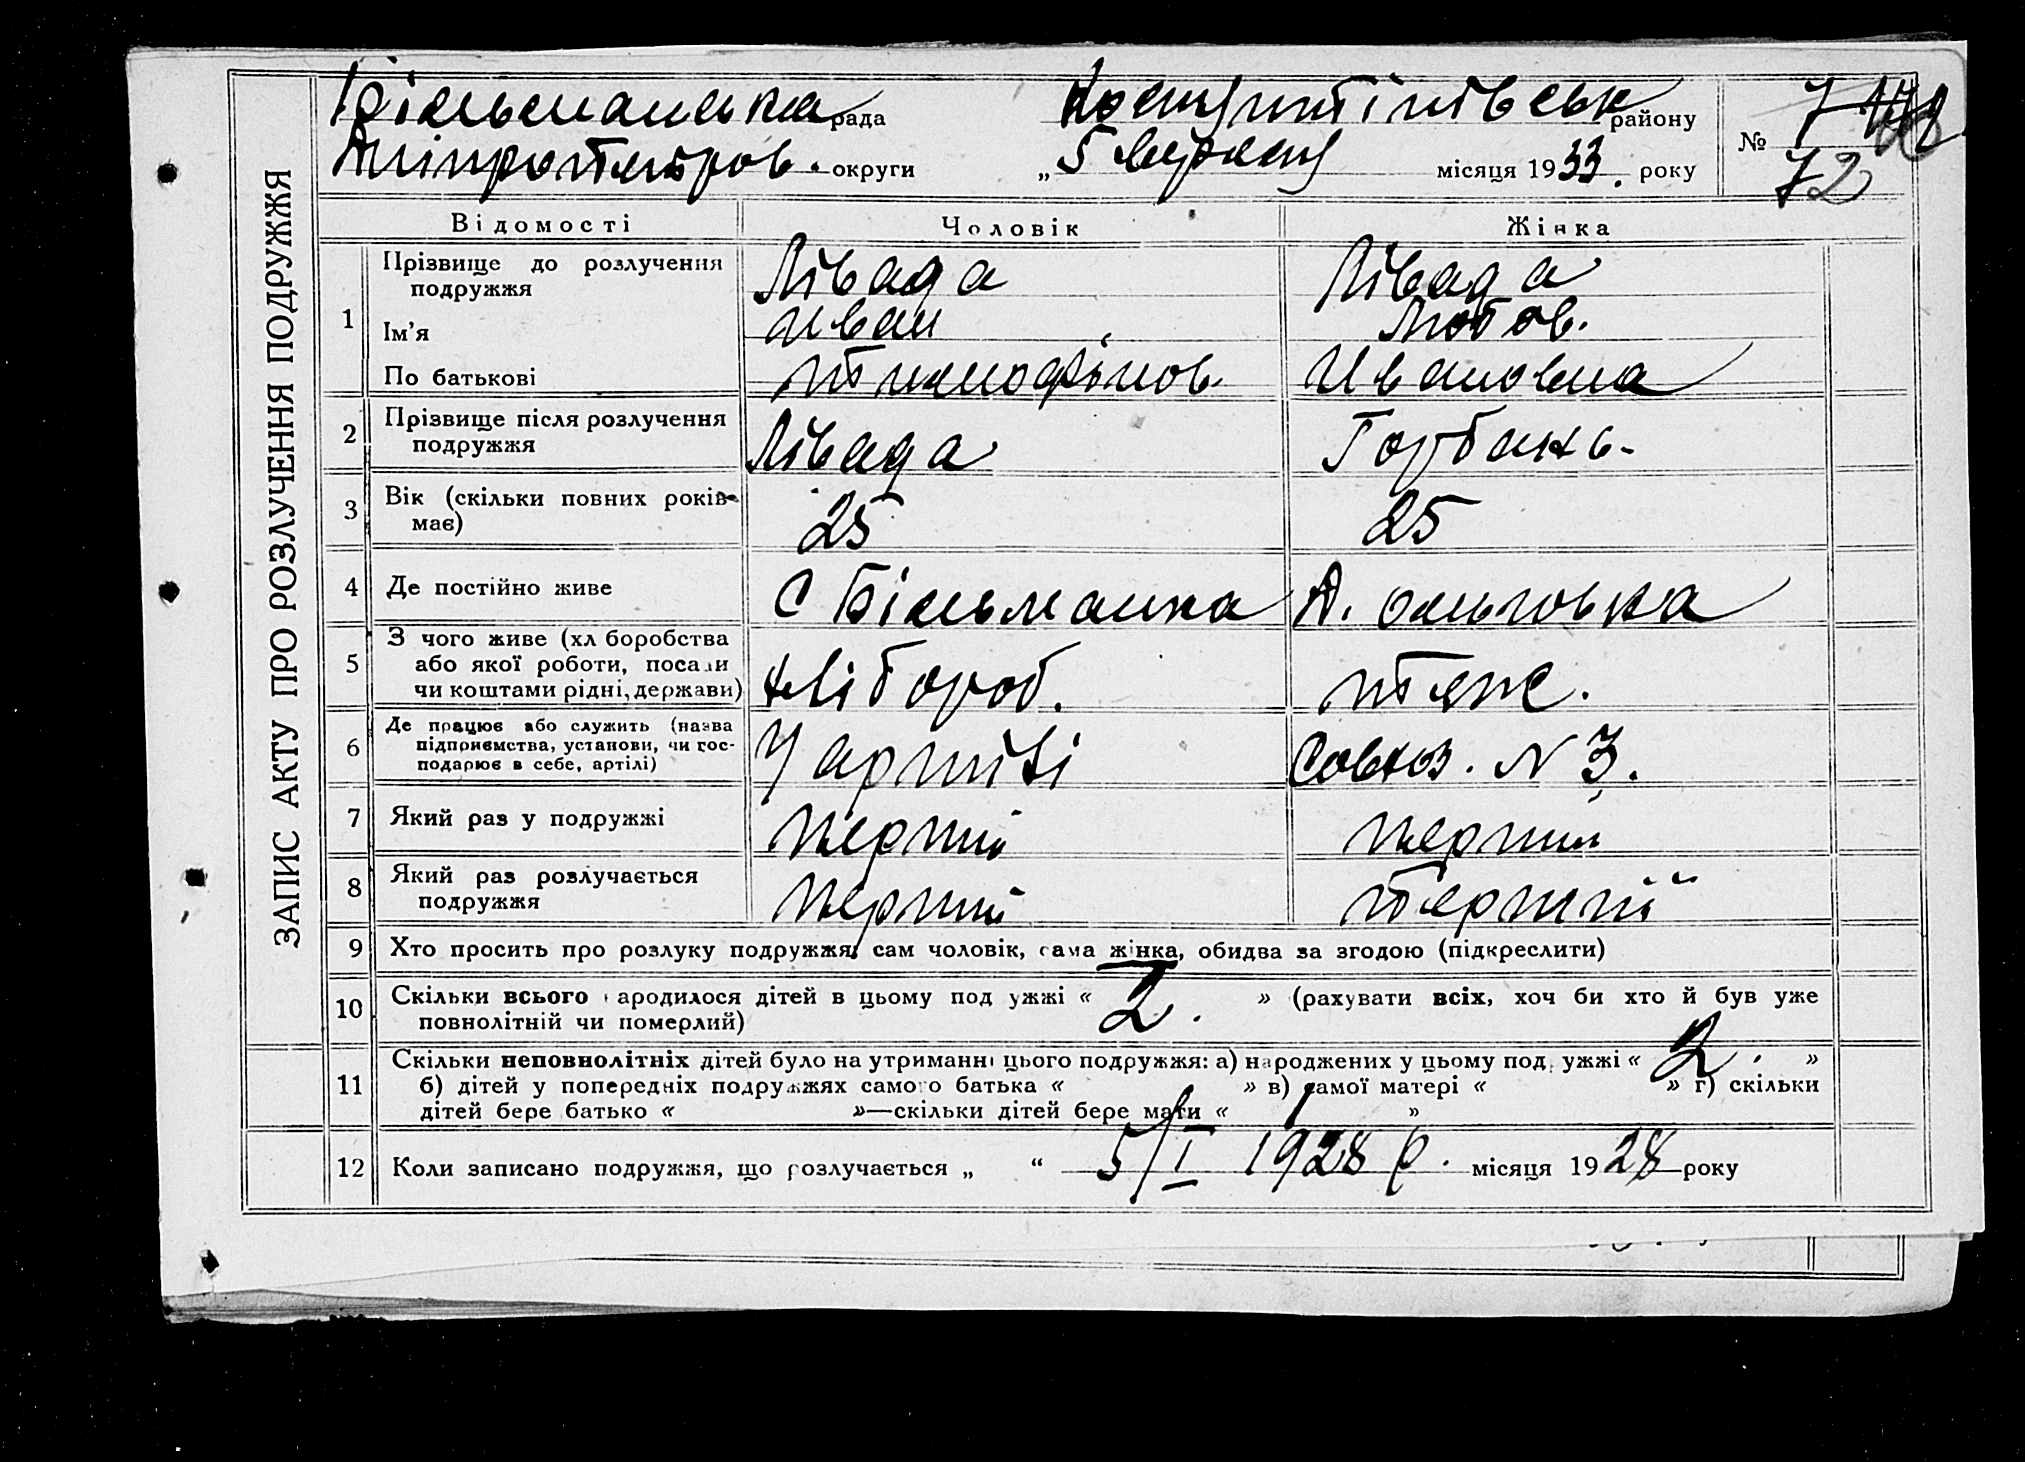 ЗАПИС АКТУ ПРО РОЗЛУЧЕННЯ ПОДРУЖЖЯ
Більманська рада району №
Дніпропетров. округи „5 місяця 1933. року 72
Відомості Чоловік Жінка
1 Прізвище до розлучення подружжя Лівада Лівада
Ім'я Иван Любов.
По батькові Ивановна
2 Прізвище після розлучення подружжя Лівада Горбань.
3 Вік (скільки повних років має) 25 25
4 Де постійно живе С Більманка ольговка
5 З чого живе (хл боробства або якої роботи, посади чи коштами рідні, держави) хлібороб. теж.
6 Де працює або служить (назва підприємства, установи, чи господарює в себе, артілі) У артілі Совхоз. N 3.
7 Який раз у подружжі перший перший
8 Який раз розлучається подружжя перший перший
9 Хто просить про розлуку подружжя: сам чоловік, сама жінка, обидва за згодою (підкреслити)
10 Скільки всього народилося дітей в цьому подружжі « 2. » (рахувати всіх, хоч би хто й був уже
повнолітній чи померлий)
11 Скільки неповнолітніх дітей було на утриманні цього подружжя: а) народжених у цьому подружжі « 2. »
б) дітей у попередніх подружжях самого батька « » в) самої матері « » г) скільки
дітей бере батько « »—скільки дітей бере мати « 1 »
12 Коли записано подружжя, що розлучається „ “ 5/I 1928 р. місяця 1928 року